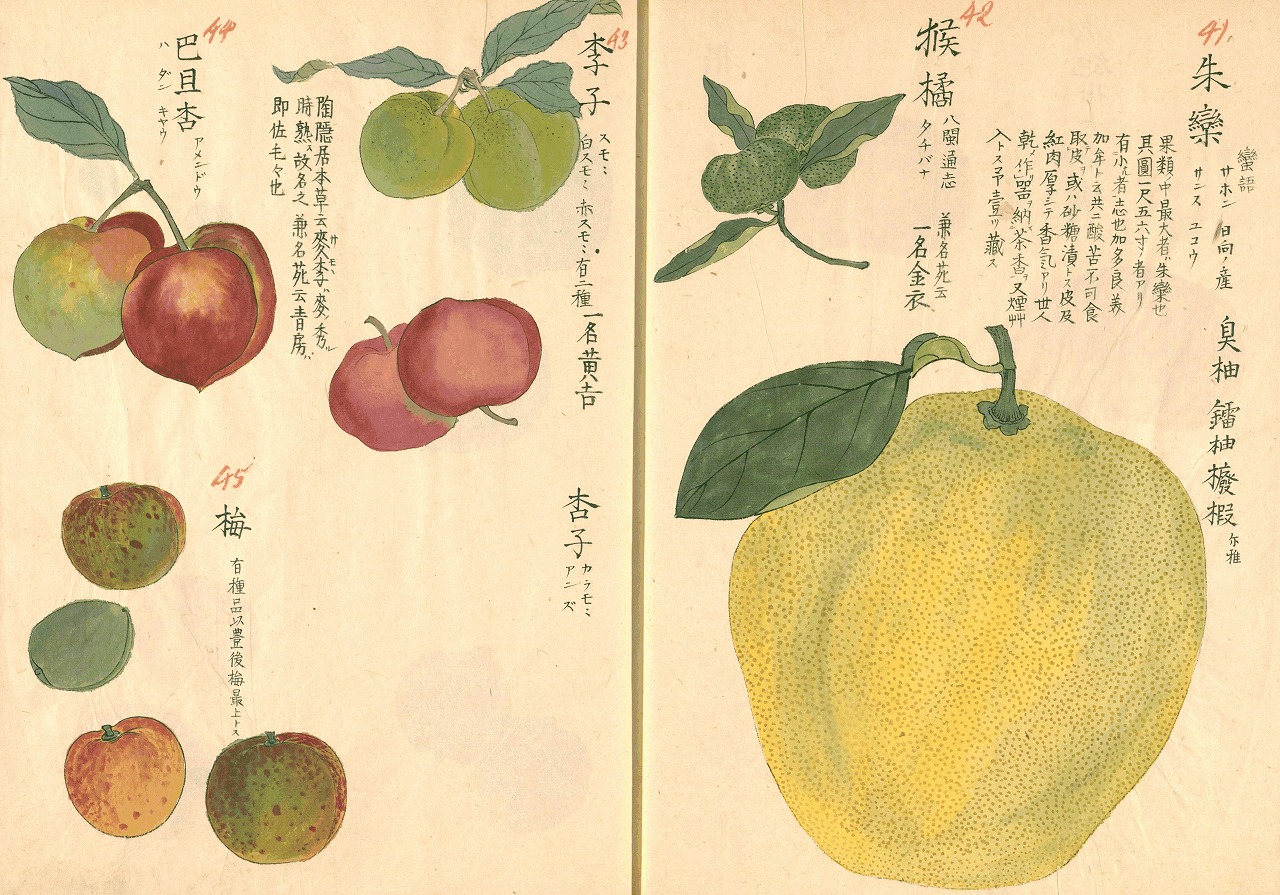 41.
朱欒
蠻語
サホン 日向ノ産
サンス ユコウ
臭柚 鐳柚 櫠椵 尓雅
果類中最大者ハ朱欒也
其圓一尺五六寸ノ者アリ
有小者志也加多良義
加牟ト云共ニ酸苦不可食
取皮ヲ或ハ砂糖漬トス皮及
紅肉厚シテ香氣ミアリ世人
乾ノ作リ器ヲ納茶香ヲ又煙艸
入トス予壹ツ藏ス
42
猴橘
八閩通志
タチバナ
兼名苑云
一名金衣
43
李子
スモミ
白スモミ 赤スモミ有二種
一名黄吉
陶隱居本草云麥李ハ麥ノ秀ル
サモミ
時熟ス故名之 兼名苑云青房ハ
即佐毛々也
杏子
カラモミ
アンズ
44
巴旦杏
アメンドウ
ハダンキヤウ
45
梅
有種品以豊後梅最上トス